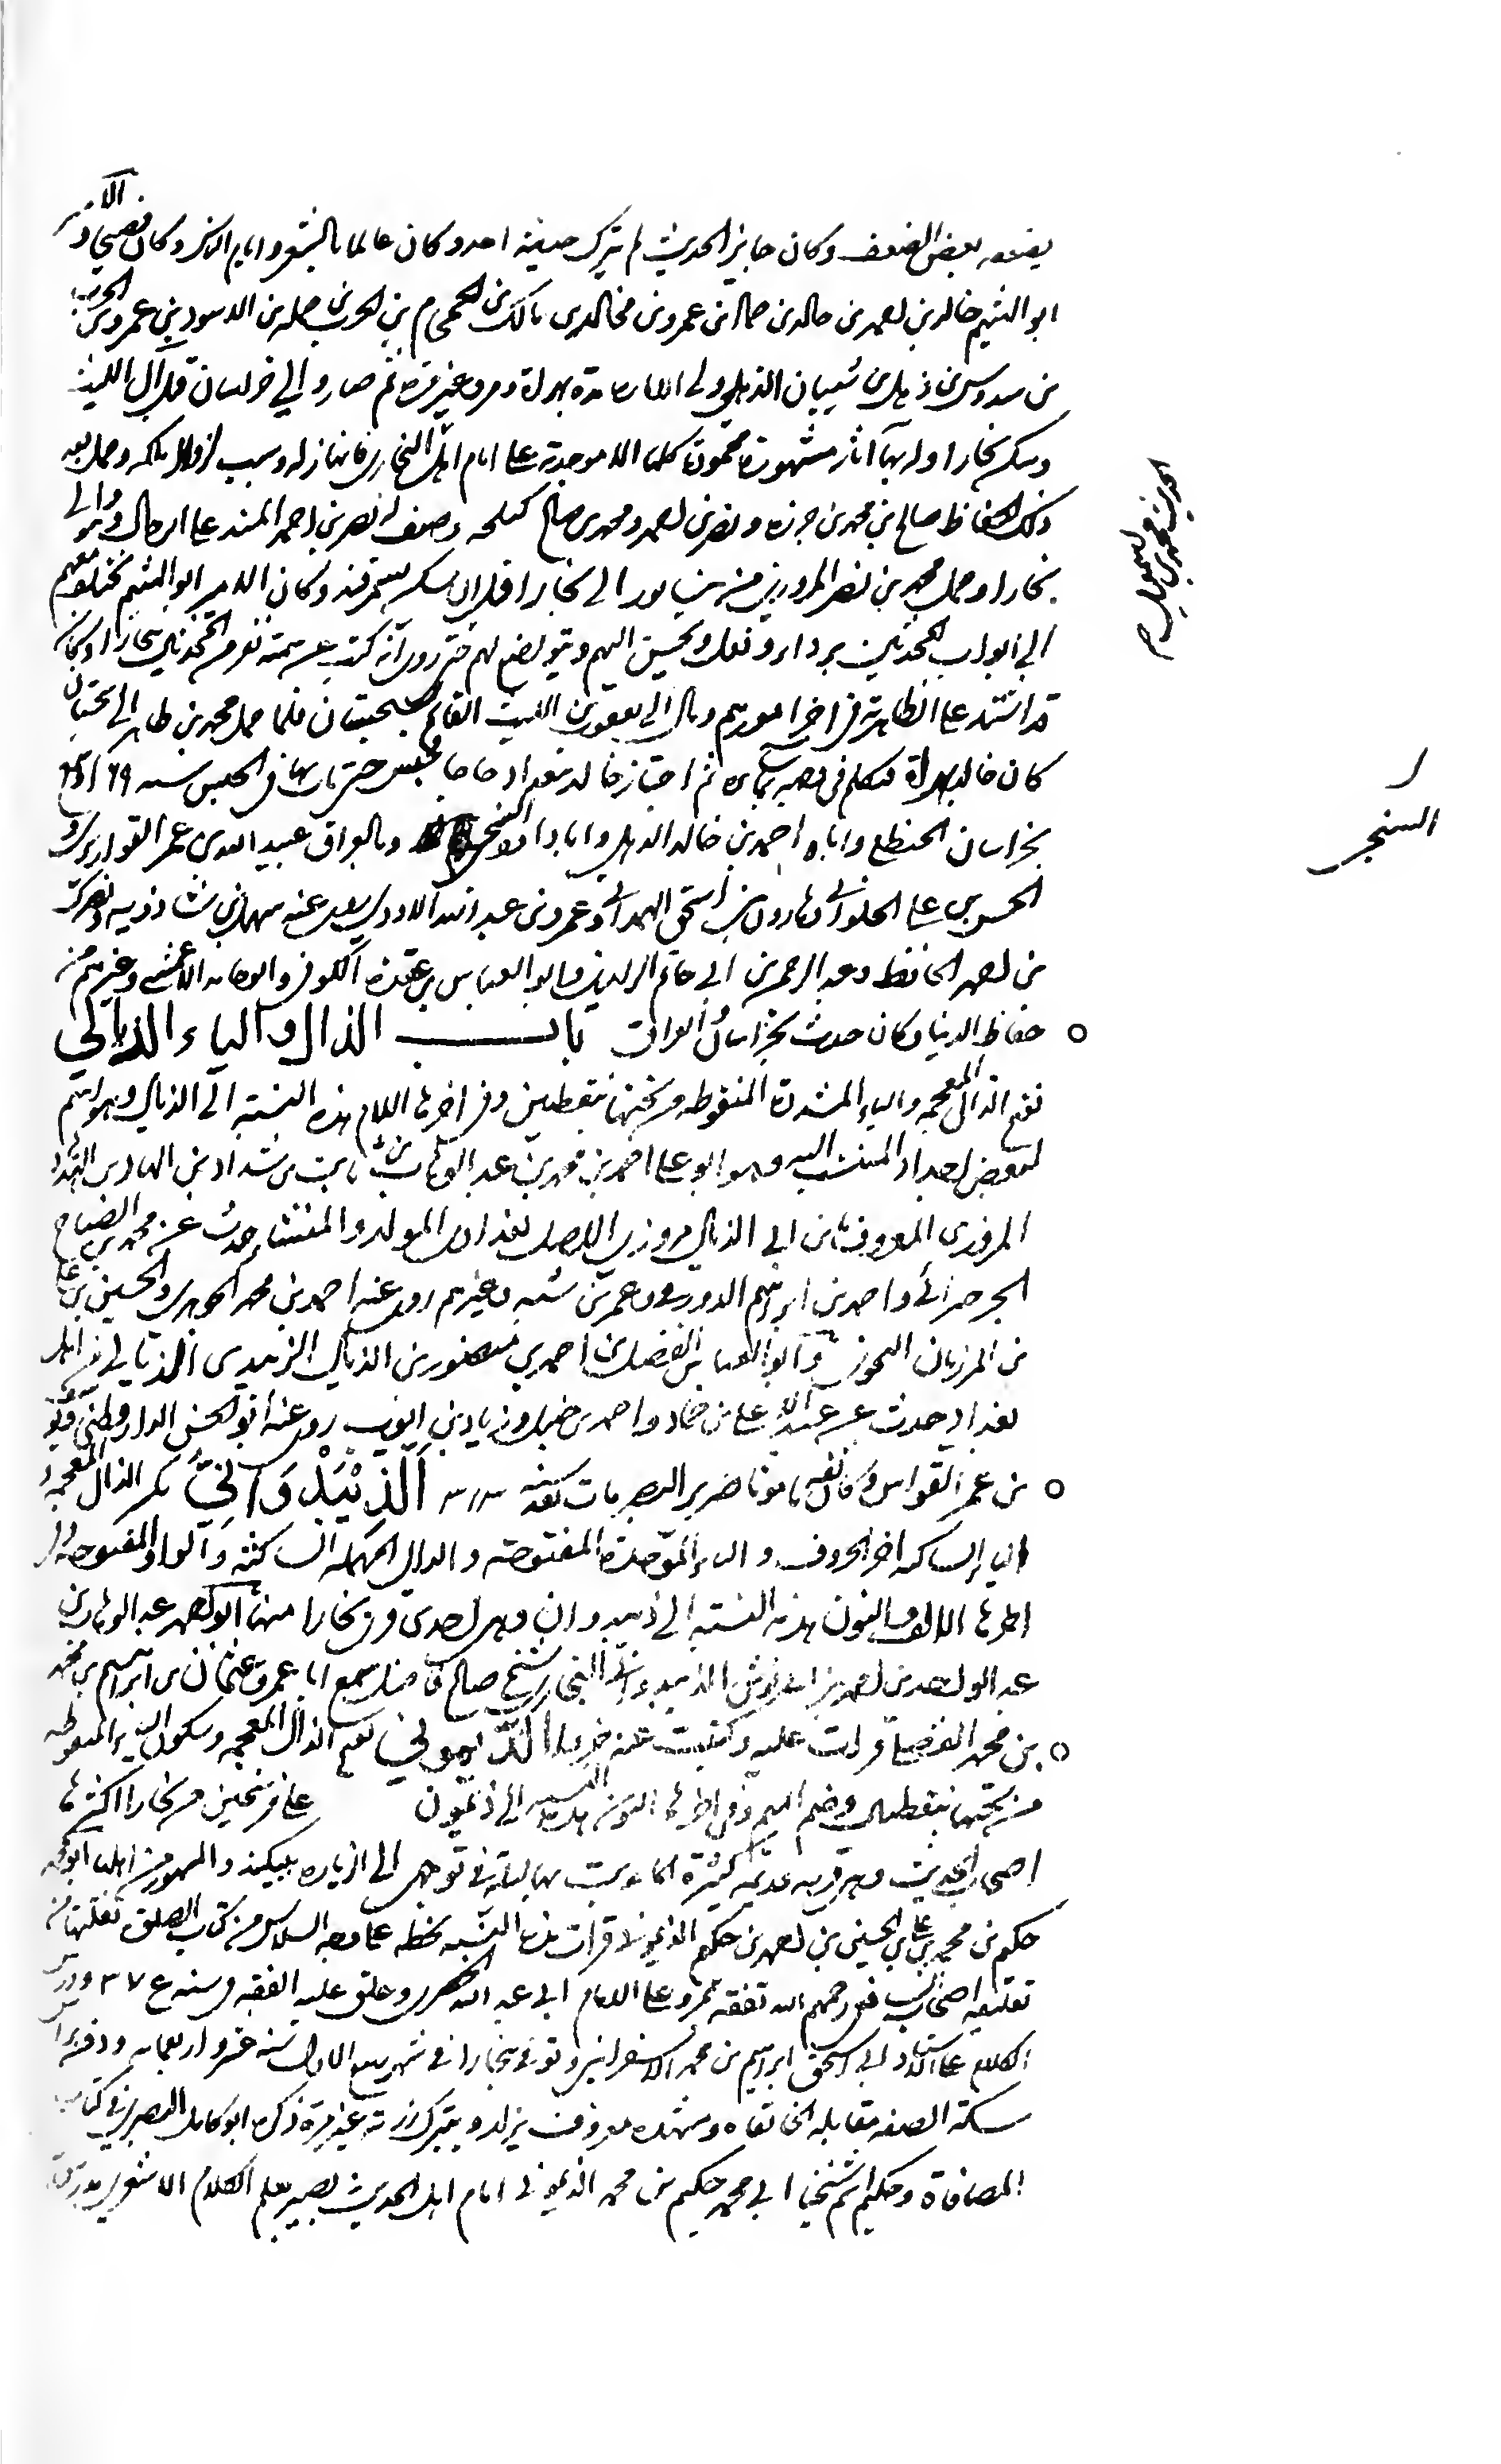 بضعفه بعض الضعف وكان جايز الحديث لم يترك حديثه احد وكان عالما بالشعر وايام الناس وكان فصيحا والامير
ابو الهيثم خالد بن احمد بن خالد بن حماد بن عمرو بن مخالد بن مالك بن الحمحام بن الحرث بن حمله بن الاسود بن عمرو بن الحرث
بن سدوس بن ذهل بن شيبان الذهلي ولى الامارة مدة بهراة ومرو غير مرة ثم صار والي خراسان قبل آل الليث
وسكن بخارا وله بها آثار مشهورة محمودة كلها الا موجدته على امام اهل البخاري فانها زلة وسبب لزوال ملكه وحمل بعد
ذلك الحفاظ صالح بن محمد بن جزره ونصر بن احمد ومحمد بن صالح كيلجه وصنف له نصر بن احمد المسند على الرجال وهو والي
بخارا وحمل محمد بن نصر المروزي من نيسابور الى بخارا قبل ان يسكن سمرقند وكان الامير ابو الهيثم يختلف معهم
الى ابواب المحدثين برداء ونعل ويحسن اليهم ويتواضع لهم حتى روى انه كتب عن ستمة نفر من المحدثين ببخارا وكان
قد اشتد على الطاهرية في اخر امورهم ومال الى يعقوب بن الليث القائم بسجستان فلما حمل محمد بن طاهر الى سجستان
كان خالد بهراة فتكلم في وجهه بما ساءه ثم اجتاز خالد ببغداد حاجا فحبس حتى مات بها في الحبس سنه ٢٦٩
بخراسان الحنظلي واباه احمد بن خالد الذهلي وابا داود السنجي وبالعراق عبيد الله بن عمر القواريري و
الحسن بن علي الحلواني وهارون بن اسحق الهمداني وعمرو بن عبد الله الاودي سمع منه سهل بن شاذويه ونصرك
بن احمد الحافظ وعبد الرحمن بن ابي حاتم الرازي وابو العباس بن عقدة الكوفي وابو حامد الاعمشي وغيرهم من
حفاظ الدنيا وكان حدث بخراسان والعراق باب الذال والياء الذيالي
بفتح الذال المعجمة والياء المشددة المنقوطة من تحتها بنقطتين وفي اخرها اللام هذه النسبة الى الذيال وهو اسم
لبعض اجداد المنتسب اليه وهو ابو علي احمد بن محمد بن عبد الوهاب بن ثابت بن شداد بن الهاد بن الهدهاد
المروزي المعروف بابن ابي الذيال مروزي الاصل بغدادي المولد والمنشا حدث عن محمد بن الصباح
الجرجرائي واحمد بن ابراهيم الدورقي وعمر بن شبه وغيرهم روى عنه احمد بن محمد الجوهري والحسين بن علي
بن المرزبان النحوي وابو العباس الفضل بن احمد بن منصور بن الذيال الزبيدي الذيالي من اهل
بغداد حدث عن عبد الاعلى بن حماد واحمد بن حنبل وزياد بن ايوب روى عنه ابو الحسن الدارقطني ويوسف
بن عمر القواس وكان ثقة مامونا ضرير البصر مات بعد سنة ٣١٣ الذِيْبَدْوَانِيّ بكسر الذال المعجمة و
الياء الساكنه اخر الحروف والباء الموحدة المفتوحة والدال المهملة الساكنة والواو المفتوحة وفي
اخرها الالف والنون هذه النسبة الى ذيبدوان وهي احدى قرى بخارا منها ابو احمد عبد الوهاب بن
عبد الواحد بن احمد بن ابي نوش الذيبدواني البخاري شيخ صالح فاضل سمع ابا عمرو عثمان بن ابراهيم بن محمد
بن محمد الفضلي قرات عليه وكتبت عنه ببخارا الذيموني بفتح الذال المعجمة وسكون الياء المنقوطة
من تحتها بنقطتين وضم الميم وفي اخرها النون هذه النسبة الى ذيمون على فرسخين من بخارا اكثرها
اصحاب الحديث وهي قرية قديمة كثيرة الماء بت بها ليلة في توجهي الى الزيارة ببيكند والمشهور من اهلها ابو محمد
حكيم بن محمد بن علي بن الحسين بن احمد بن حكيم الذيموني قرات هذه النسبة بخطه على وجه السادس من كتاب الصلوة تعلقها من
تعليقه اصحاب الشافعي رحمهم الله تفقه بمرو على الامام ابي عبد الله الخضري وعلق عليه الفقه في سنه ٣٧٤ ودرس
الكلام على الاستاد ابي اسحق ابراهيم بن محمد الاسفرايني وتوفي ببخارا في شهر ربيع الاول سنة عشر واربعمايه ودفن براس
سكة الصفه مقابله الخانقاه ومشهده معروف يزار ويتبرك زرته غير مرة ذكره ابو كامل البصيري في كتاب
المضافاة وحكيم اسم شيخنا ابي محمد حكيم بن محمد الذيموني امام اهل الحديث بصير بعلم الكلام الاشعري يدرس
احمد بن محمد بن اسمعيل صح
السنجر